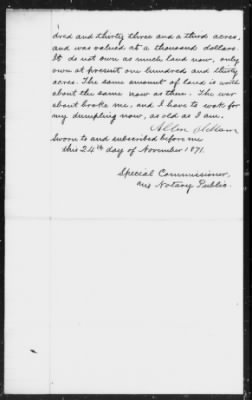 dred and thirty three and a third acres,
and was valued at a thousand dollars.
It do not own as much land now, only
own at present one hundred and thirty
acres. The same amount of land is worth
about the same now as then. The war
about broke me, and I have to work for
my dumpling now, as old as I am.
Allen
Sworn to and subscribed before me
this 24th day of November 1871.
Special Commissioner,
and Notary Public.